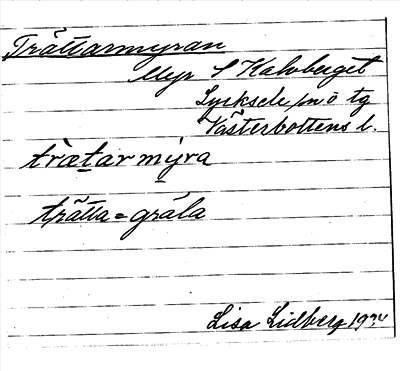 Trättarmyran
Myr S Kalvberget
Lycksele sn o tg
Västerbottens l.
trætarmyra
trätta = gräla
Lisa Lidberg 1934